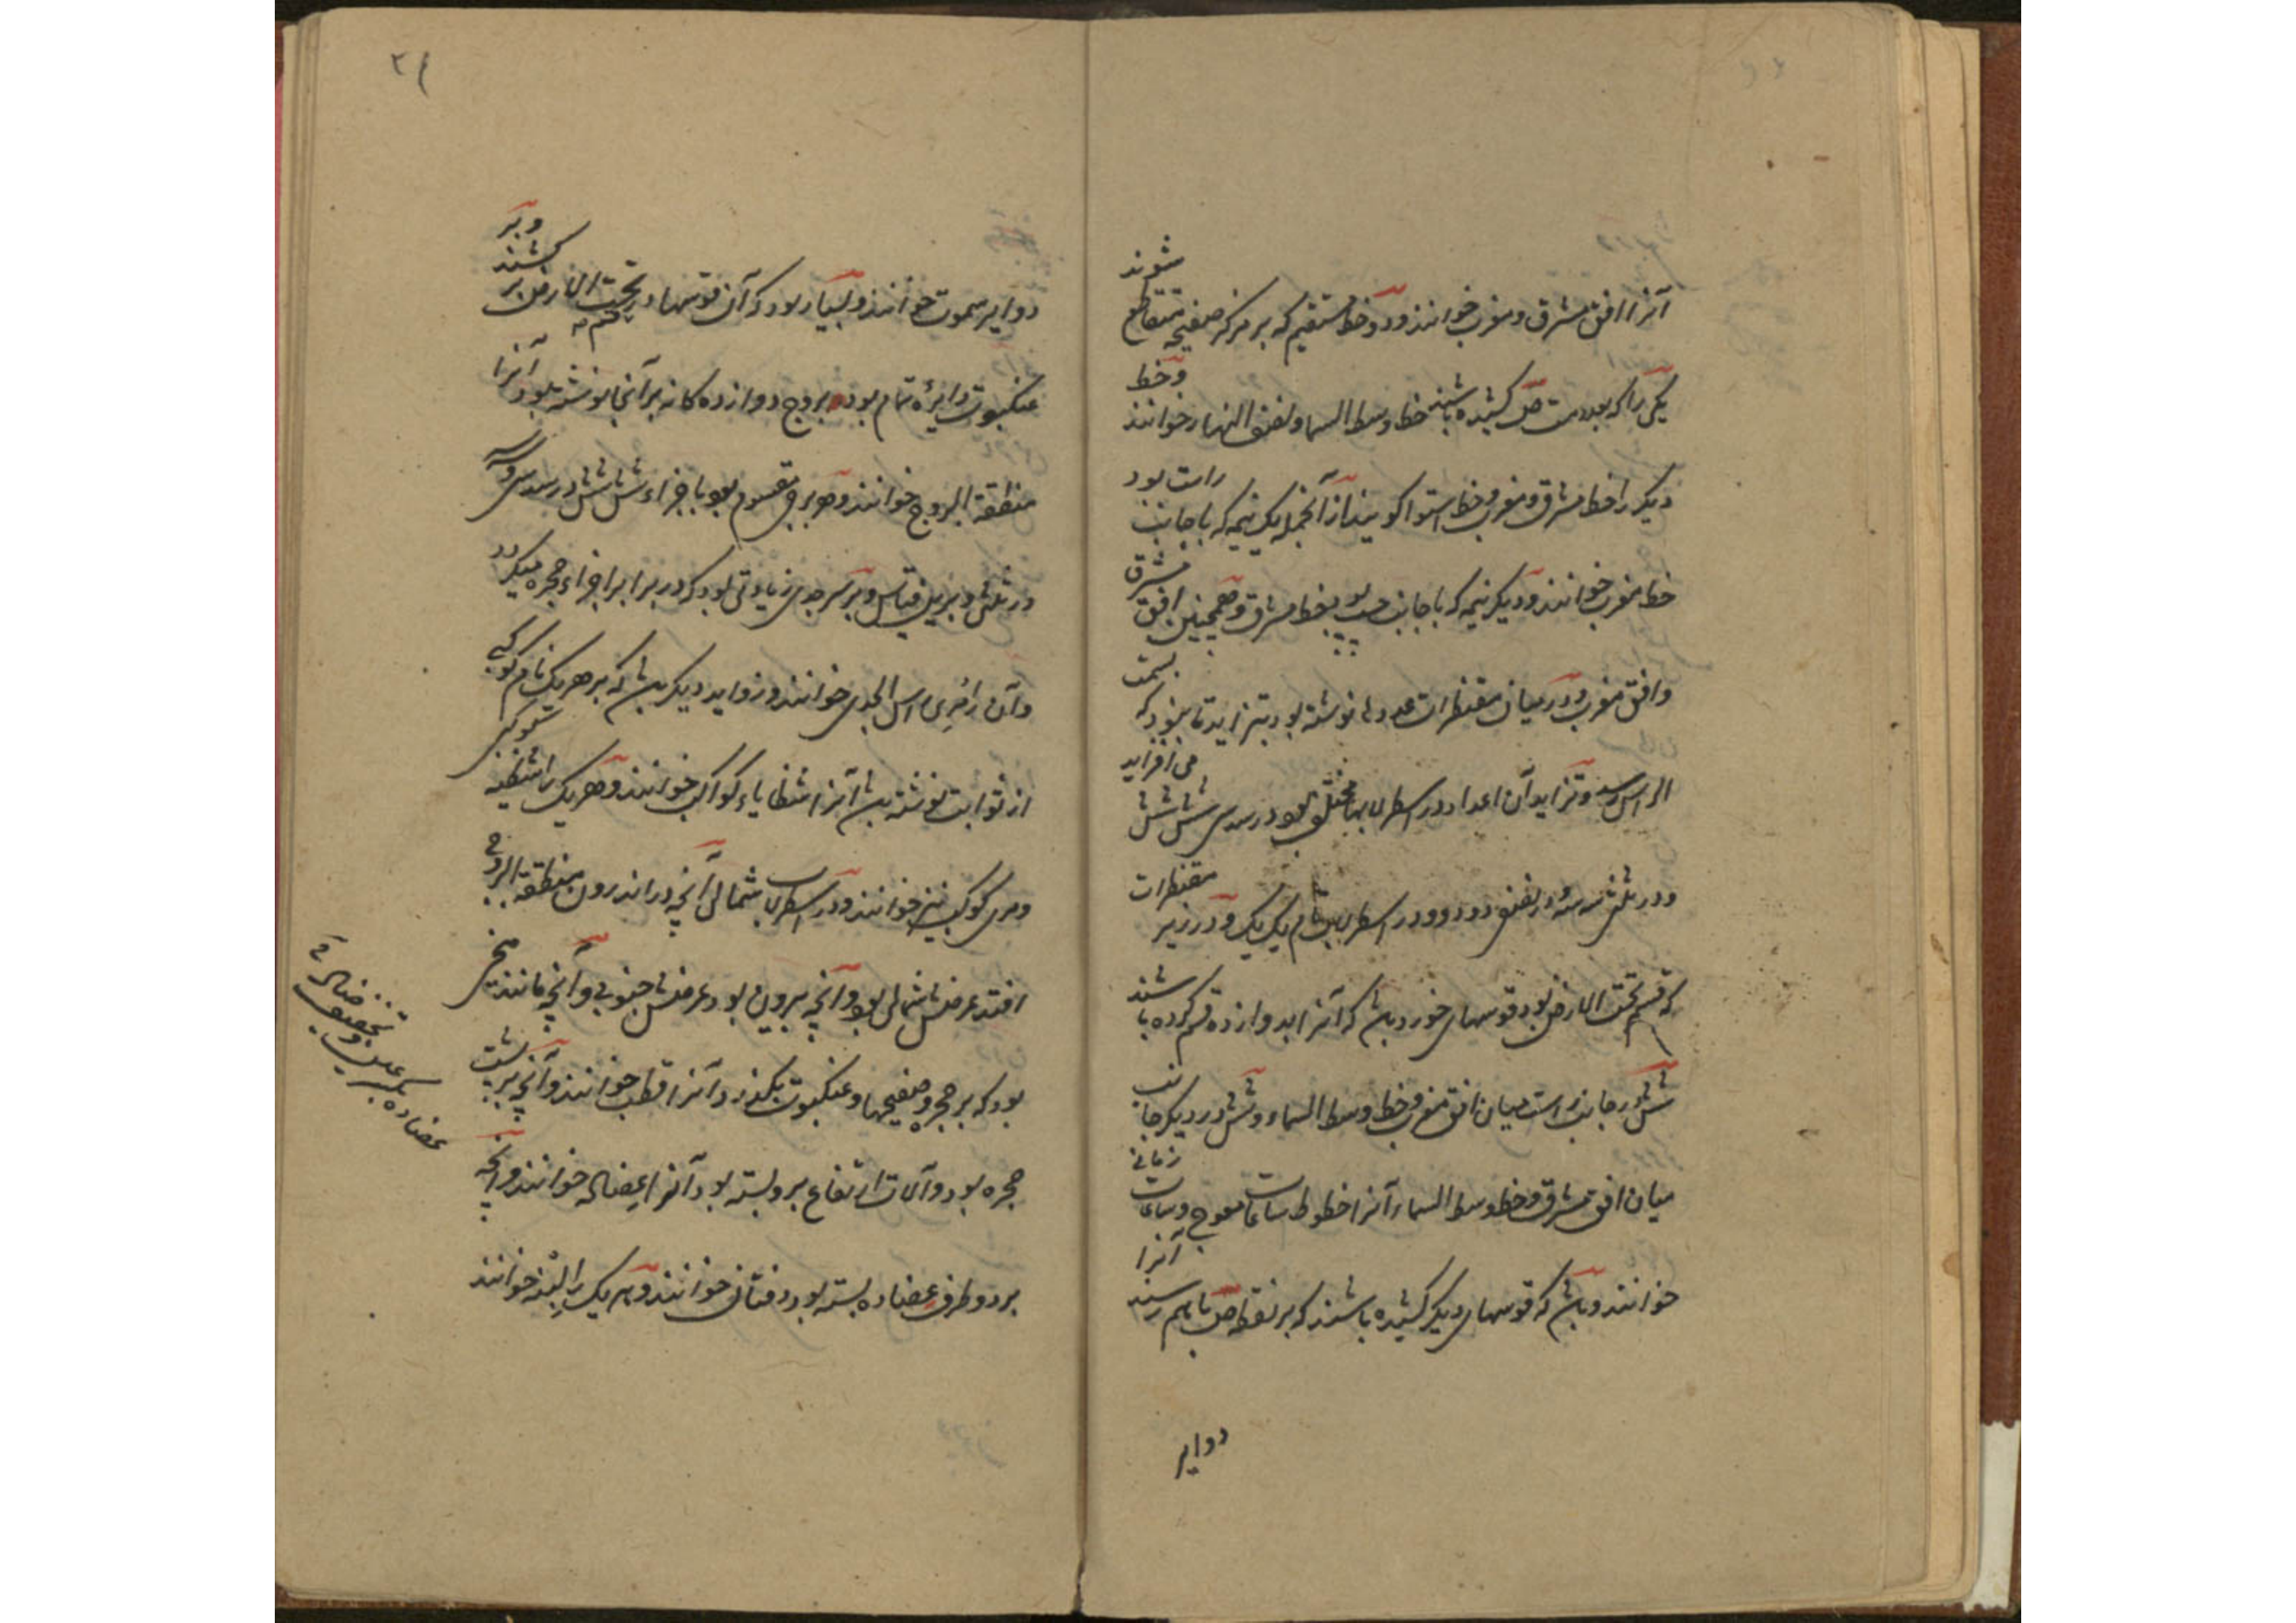 آنرا افق مشرق و مغرب خوانند و دو خط مستقیم که بر مرکز صفیحه متقاطع شوند
یکی را که بعد دست کشیده باشند خط وسط السما و نصف النهار خوانند و خط
دیکر را خط مشرق و مغرب و خط استوا کویند از آنجمله یک نیمه که با جانب راست بود
خط مغرب خوانند و دیکر نیمه که با جانب چپ بود خط مشرق و همچنین افق مشرق
و افق مغرب و در میان مقنطرات عددها نوشته بود بتزاید تا بنود که بسمت
الراس رسد و تزاید آن اعداد در اسطرلابها مختلف بود در سدسی شش شش می افزاید
و در ثلثی سه سه و در نصفی دو دو و در اسطرلاب تام یک یک و در زیر مقنطرات
که قسم تحت الارض بود قوسهای خورد باشد که آنرا بدوازده قسم کرده باشند
شش در جانب راست میان افق مغرب و خط وسط السماء و شش در دیکر جانب
میان افق مشرق و خط وسط السماء آنرا خطوط ساعات معوج و ساعات زمانی
خوانند و باشد که قوسهای دیکر کشیده باشند که بر نقطه باهم رسند آنرا
دوایر
۲۱
دوایر سموت خوانند و بسیار بود که آن قوسها در قسم تحت الارض بر کشند و بر
عنکبوت دایرهٔ تمام بود بروج دوازده کانه بر آنجا نوشته بود آنرا
منطقة البروج خوانند و هر برج مقسوم بود باجزاء شش شش در سدسی و سه سه
در ثلثی و برین قیاس و بر سر جدی زیادتی بود که در برابر اجزاء حجره میکردد
و آن را مری راس الجدی خوانند و زواید دیکر باشد که بر هر یک نام کوکبی
از ثوابت نوشته باشد آنرا شظایاء کواکب خوانند و هر یک را شظیه کوکبی
و مری کوکب نیز خوانند و در اسطرلاب شمالی آنچه در اندرون منطقة البروج
افتد عرضش شمالی بود و آنچه بیرون بود عرضش جنوبی و آنچه مانند میخی
بود که بر حجره و صفیحها و عنکبوت بکذرد آنرا قطب خوانند و آنچه بر پشت
حجره بود و آلات ارتفاع برو بسته بود آنرا عضاله خوانند و آنچه
بر دو طرف عضاده بسته بود دفتان خوانند و هر یک را لبنه خوانند
عضاده بکسر عین و تخفیف ضاد